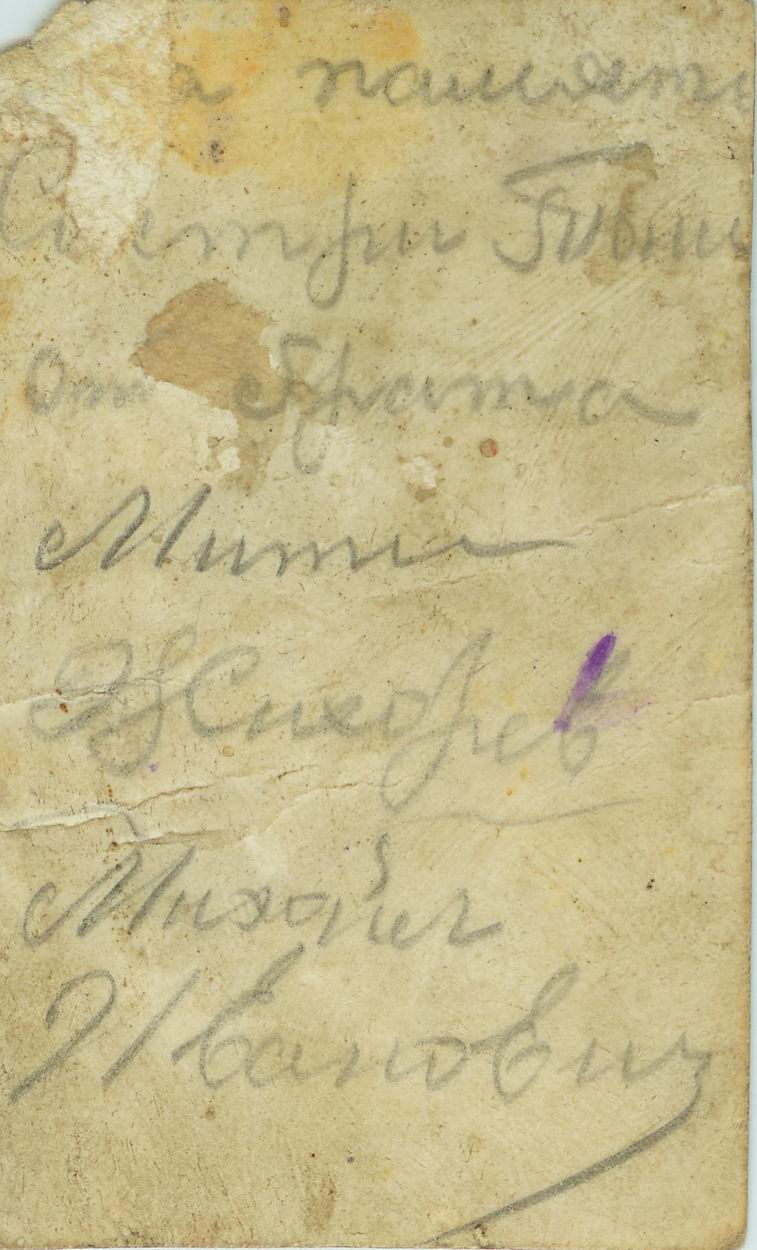 а память
Сестри
От брата
Мити
Жихорев
Михаил
Иванович